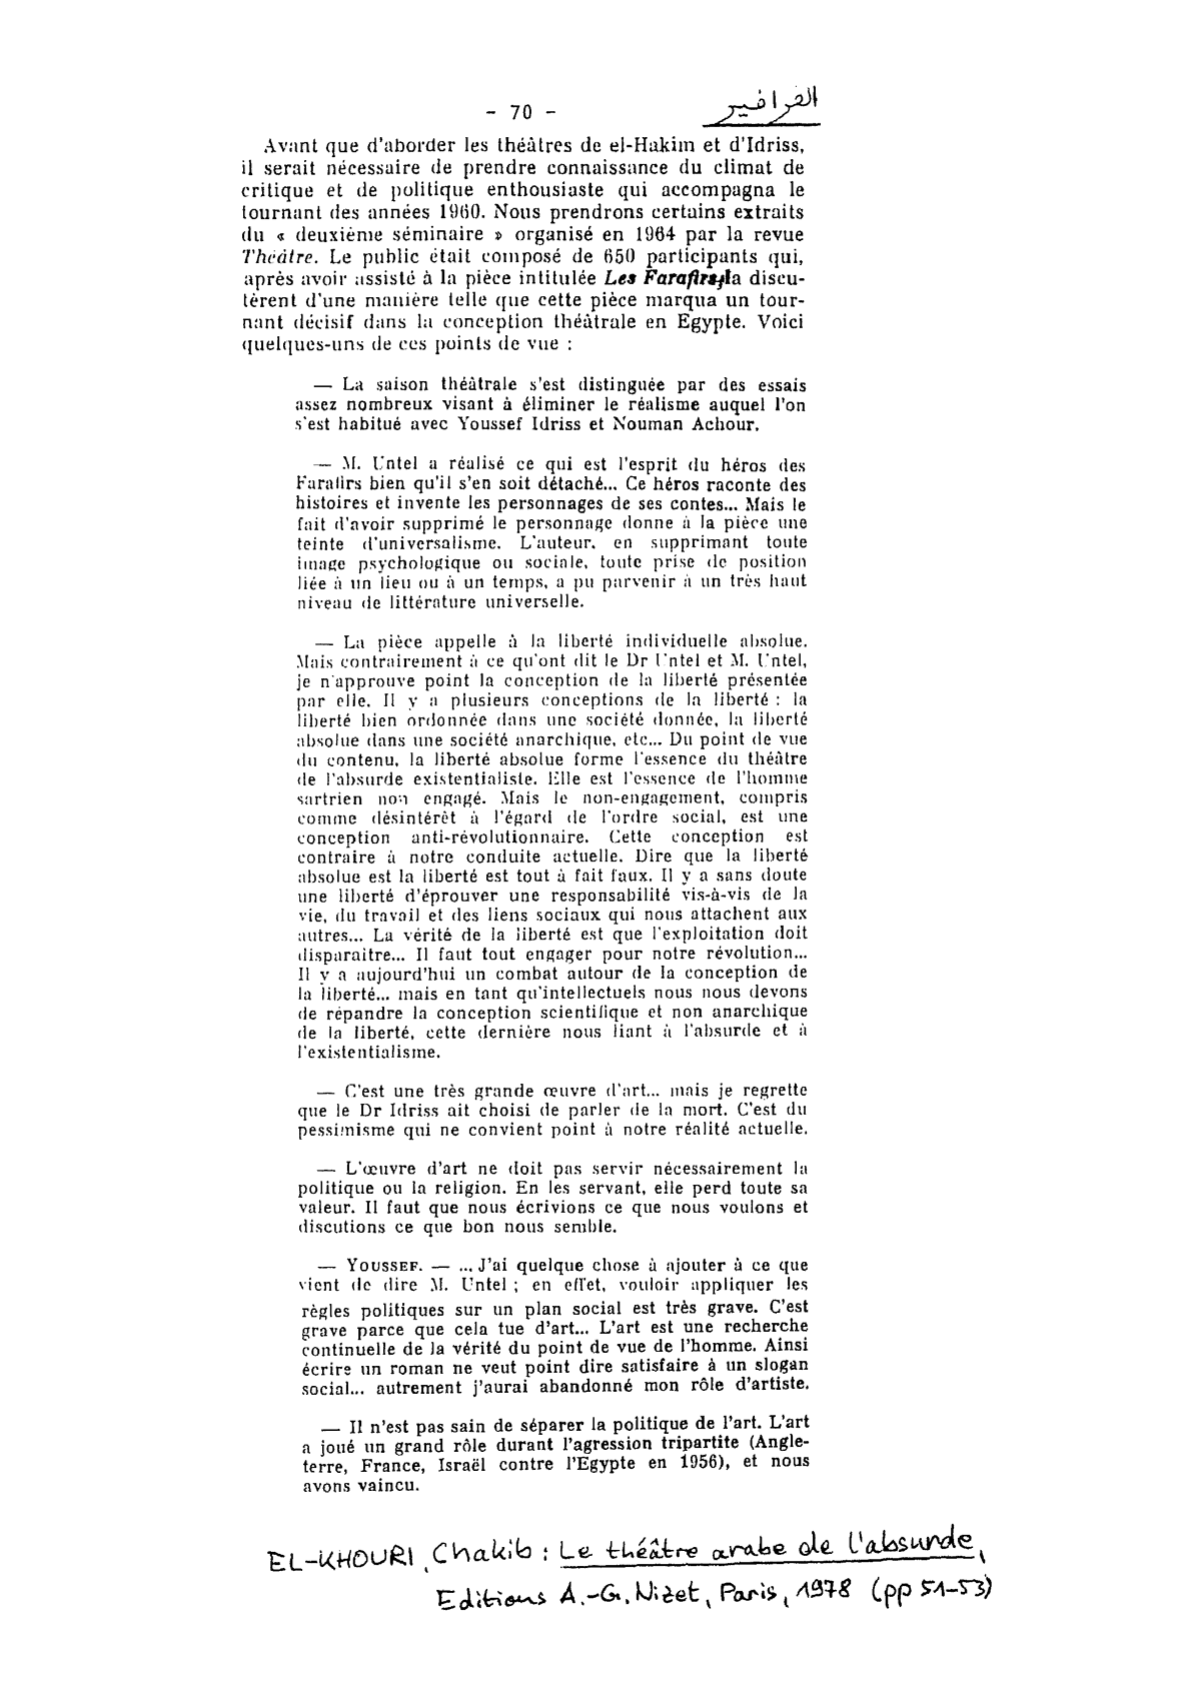 - 70 -
الفرافير
Avant que d'aborder les théâtres de el-Hakim et d'Idriss,
il serait nécessaire de prendre connaissance du climat de
critique et de politique enthousiaste qui accompagna le
tournant des années 1960. Nous prendrons certains extraits
du « deuxième séminaire » organisé en 1964 par la revue
Théâtre. Le public était composé de 650 participants qui,
après avoir assisté à la pièce intitulée Les Farafirs, la discu-
tèrent d'une manière telle que cette pièce marqua un tour-
nant décisif dans la conception théâtrale en Egypte. Voici
quelques-uns de ces points de vue :
— La saison théâtrale s'est distinguée par des essais
assez nombreux visant à éliminer le réalisme auquel l'on
s'est habitué avec Youssef Idriss et Nouman Achour.
— M. Untel a réalisé ce qui est l'esprit du héros des
Farafirs bien qu'il s'en soit détaché... Ce héros raconte des
histoires et invente les personnages de ses contes... Mais le
fait d'avoir supprimé le personnage donne à la pièce une
teinte d'universalisme. L'auteur, en supprimant toute
image psychologique ou sociale, toute prise de position
liée à un lieu ou à un temps, a pu parvenir à un très haut
niveau de littérature universelle.
— La pièce appelle à la liberté individuelle absolue.
Mais contrairement à ce qu'ont dit le Dr Untel et M. Untel,
je n'approuve point la conception de la liberté présentée
par elle. Il y a plusieurs conceptions de la liberté : la
liberté bien ordonnée dans une société donnée, la liberté
absolue dans une société anarchique, etc... Du point de vue
du contenu, la liberté absolue forme l'essence du théâtre
de l'absurde existentialiste. Elle est l'essence de l'homme
sartrien non engagé. Mais le non-engagement, compris
comme désintérêt à l'égard de l'ordre social, est une
conception anti-révolutionnaire. Cette conception est
contraire à notre conduite actuelle. Dire que la liberté
absolue est la liberté est tout à fait faux. Il y a sans doute
une liberté d'éprouver une responsabilité vis-à-vis de la
vie, du travail et des liens sociaux qui nous attachent aux
autres... La vérité de la liberté est que l'exploitation doit
disparaître... Il faut tout engager pour notre révolution...
Il y a aujourd'hui un combat autour de la conception de
la liberté... mais en tant qu'intellectuels nous nous devons
de répandre la conception scientifique et non anarchique
de la liberté, cette dernière nous liant à l'absurde et à
l'existentialisme.
— C'est une très grande œuvre d'art... mais je regrette
que le Dr Idriss ait choisi de parler de la mort. C'est du
pessimisme qui ne convient point à notre réalité actuelle.
— L'œuvre d'art ne doit pas servir nécessairement la
politique ou la religion. En les servant, elle perd toute sa
valeur. Il faut que nous écrivions ce que nous voulons et
discutions ce que bon nous semble.
— YOUSSEF. — ... J'ai quelque chose à ajouter à ce que
vient de dire M. Untel ; en effet, vouloir appliquer les
règles politiques sur un plan social est très grave. C'est
grave parce que cela tue d'art... L'art est une recherche
continuelle de la vérité du point de vue de l'homme. Ainsi
écrire un roman ne veut point dire satisfaire à un slogan
social... autrement j'aurai abandonné mon rôle d'artiste.
— Il n'est pas sain de séparer la politique de l'art. L'art
a joué un grand rôle durant l'agression tripartite (Angle-
terre, France, Israël contre l'Egypte en 1956), et nous
avons vaincu.
EL-KHOURI, Chakib : Le théâtre arabe de l'absurde,
Editions A.-G. Nizet, Paris, 1978 (pp 51-53)